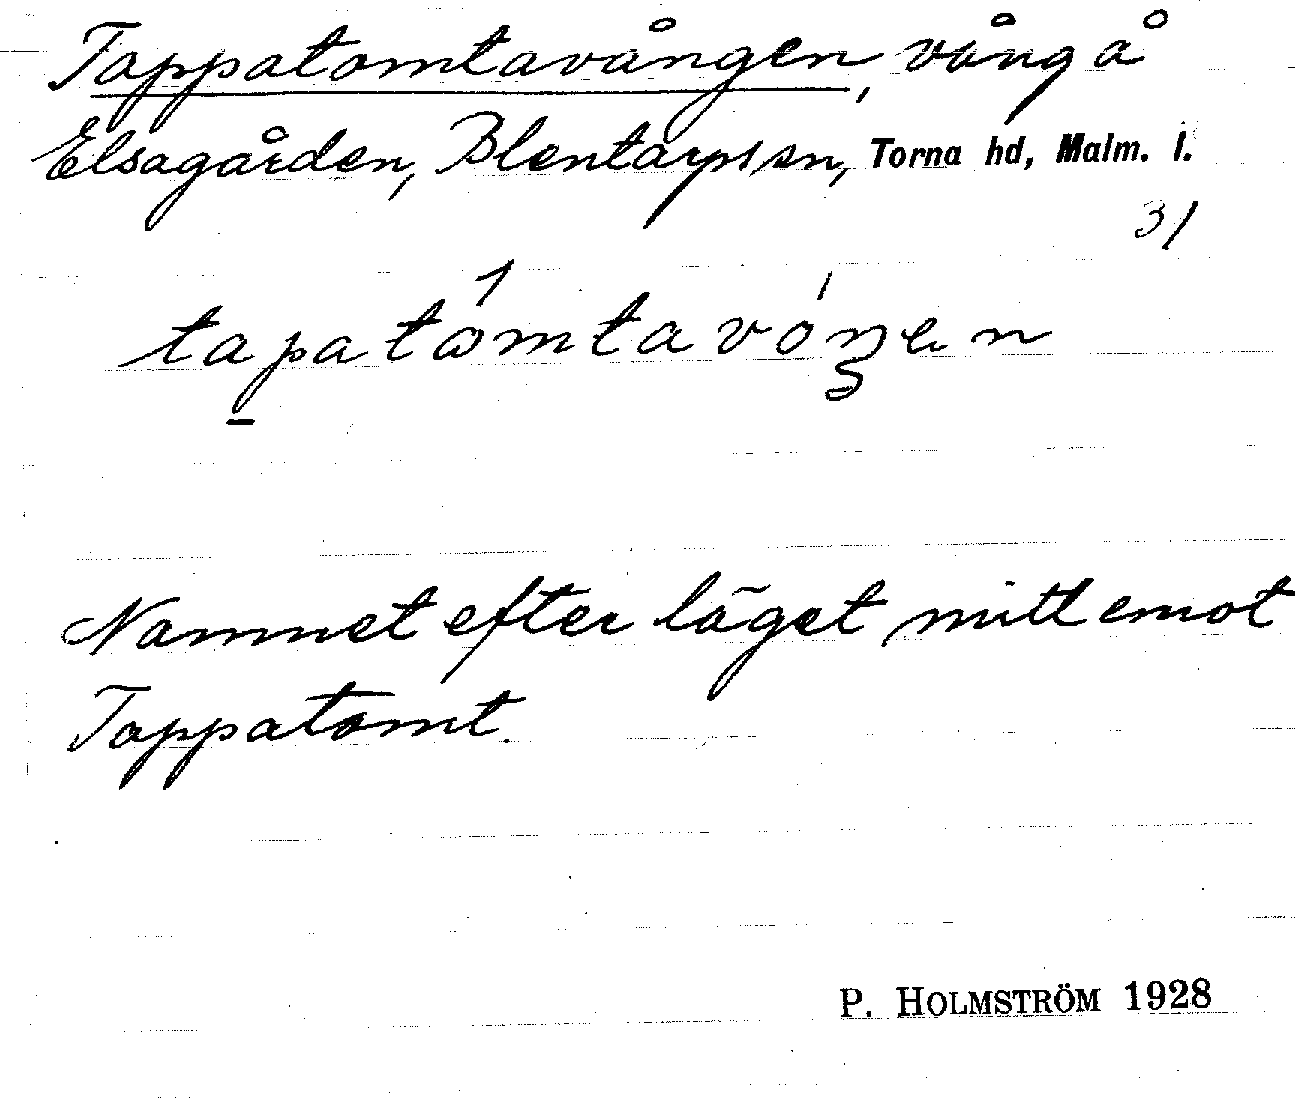 Tappatomtavången, vång å
Elsagården, Blentarps sn, Torna hd, Malm. l.
31
tapatómtavóŋen
Namnet efter läget mitt emot
Tappatomt.
P. HOLMSTRÖM 1928